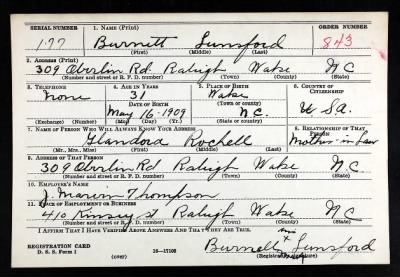 SERIAL NUMBER 1. NAME (Print) ORDER NUMBER
177 Burnett Lunsford 843
(First) (Middle) (Last)
2. ADDRESS (Print)
309 Oberlin Rd. Raleigh Wake N C
(Number and street or R. F. D. number) (Town) (County) (State)
3. TELEPHONE 4. AGE IN YEARS 5. PLACE OF BIRTH 6. COUNTRY OF CITIZENSHIP
None 31 Wake U S A.
DATE OF BIRTH (Town or county)
May 16-1909 N C.
(Exchange) (Number) (Mo.) (Day) (Yr.) (State or country)
7. NAME OF PERSON WHO WILL ALWAYS KNOW YOUR ADDRESS 8. RELATIONSHIP OF THAT PERSON
Rochell Mother-in Law
(Mr., Mrs., Miss) (First) (Middle) (Last)
9. ADDRESS OF THAT PERSON
309 Oberlin Rd Raleigh Wake N C
(Number and street or R. F. D. number) (Town) (County) (State)
10. EMPLOYER'S NAME
J. Marvin Thompson
11. PLACE OF EMPLOYMENT OR BUSINESS
410 Kinsey St Raleigh Wake N C
(Number and street or R. F. D. number) (Town) (County) (State)
I AFFIRM THAT I HAVE VERIFIED ABOVE ANSWERS AND THAT THEY ARE TRUE.
REGISTRATION CARD
D. S. S. Form 1 16—17105
(over)
Burnett x Lunsford